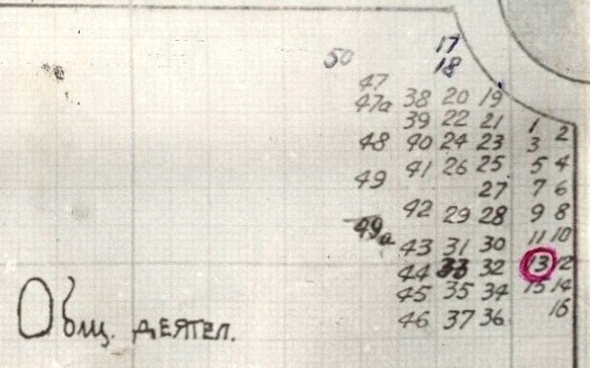 17
50 18
47
47а 38 20 19
39 22 21 1 2
48 40 24 23 3
41 26 25 5 4
49 27 7 6
42 29 28 9 8
49а 11 10
43 31 30
44 33 32 13 12
45 35 34 15 14
46 37 36 16
Общ. деятел.